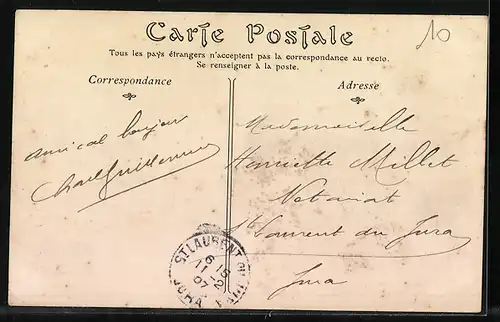 Carte Postale
10
Tous les pays étrangers n'acceptent pas la correspondance au recto.
Se renseigner à la poste.
Correspondance
amical bonjour
Adresse
Mademoiselle
Henriette Millet
Notariat
St Laurent du Jura
Jura
ST LAURENT DU JURA
6 15
11 -2
07
JURA